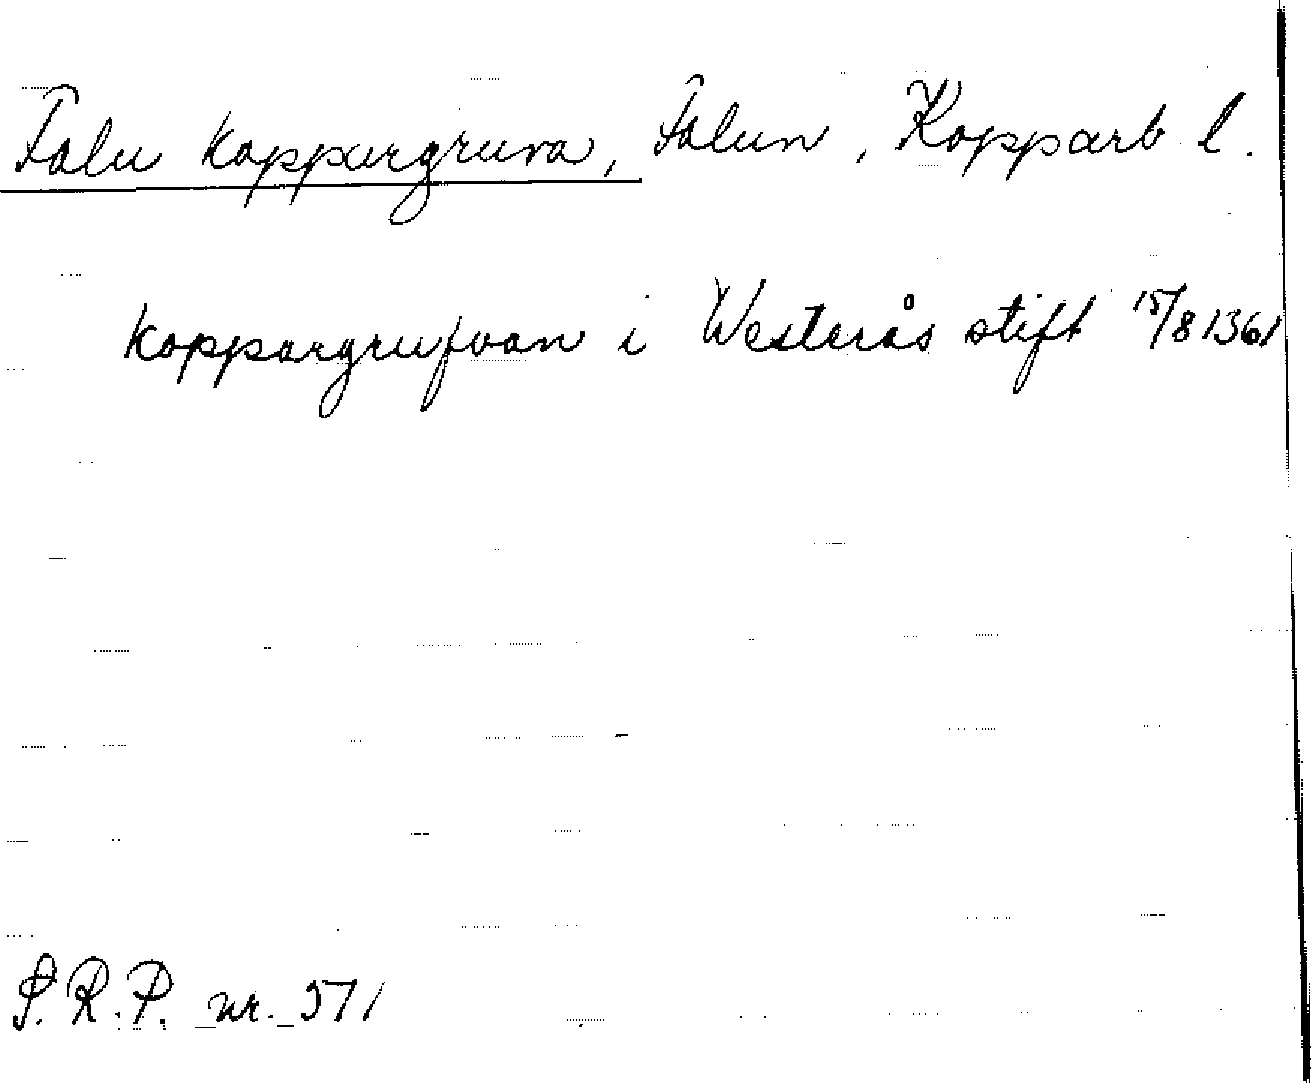 Falu koppargruva, Falun, Kopparb l.
koppargrufvan i Westerås stift 15/8 1361
S.R.P. nr. 571